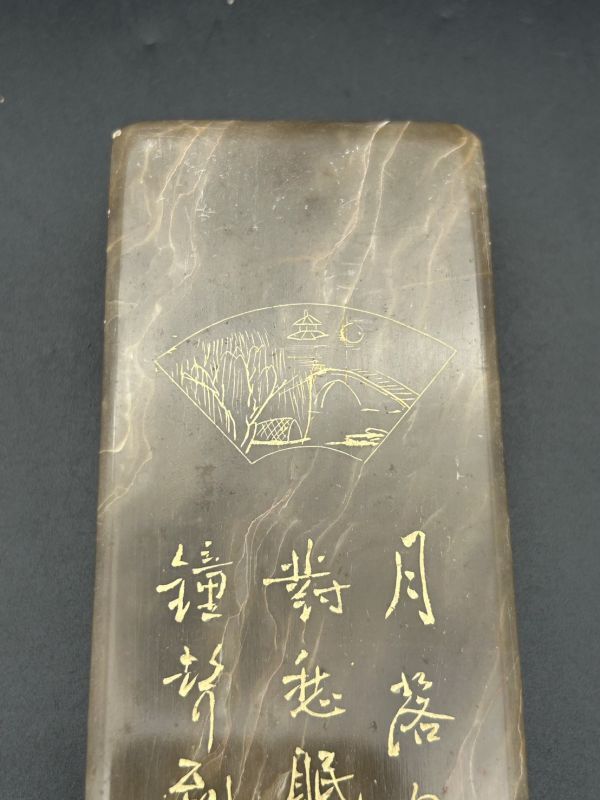 月落
對愁眠
鐘聲到